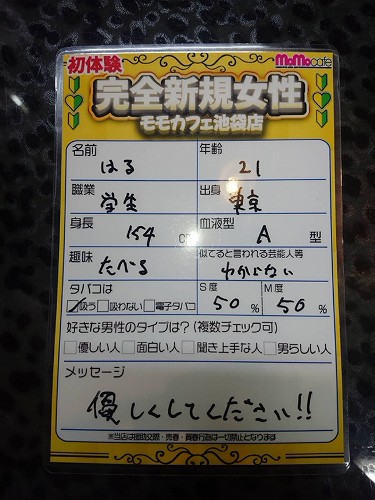 初体験
MoMocafe
完全新規女性
モモカフェ池袋店
名前 はる 年齢 21
職業 学生 出身 東京
身長 154 cm 血液型 A 型
趣味 たべる 似てると言われる芸能人等 わからない
タバコは S度 M度
吸う 吸わない 電子タバコ 50% 50%
好きな男性のタイプは?(複数チェック可)
優しい人 面白い人 聞き上手な人 男らしい人
メッセージ
優しくしてください!!
※当店は援助交際・売春・買春行為は一切禁止となります